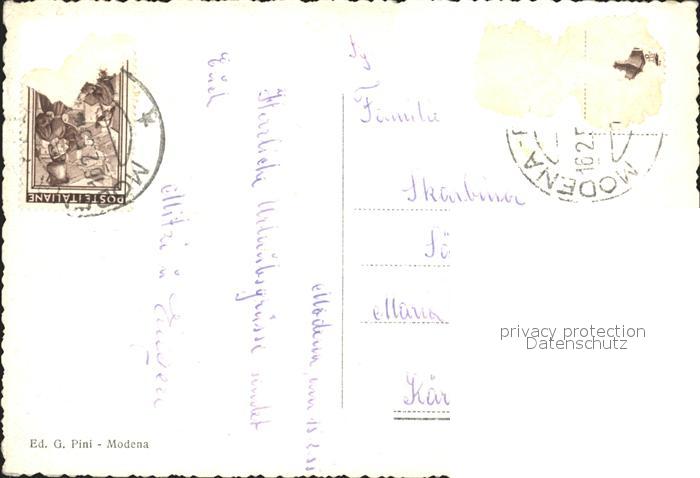 Modena, am
Herzliche Urlaubsgrüsse sendet
Euch
Mitzi u
Familie
Skarbina
Maria
Kär
POSTE ITALIANE
16.2
MODENA
MODENA
16.2.5
privacy protection
Datenschutz
Ed. G. Pini - Modena